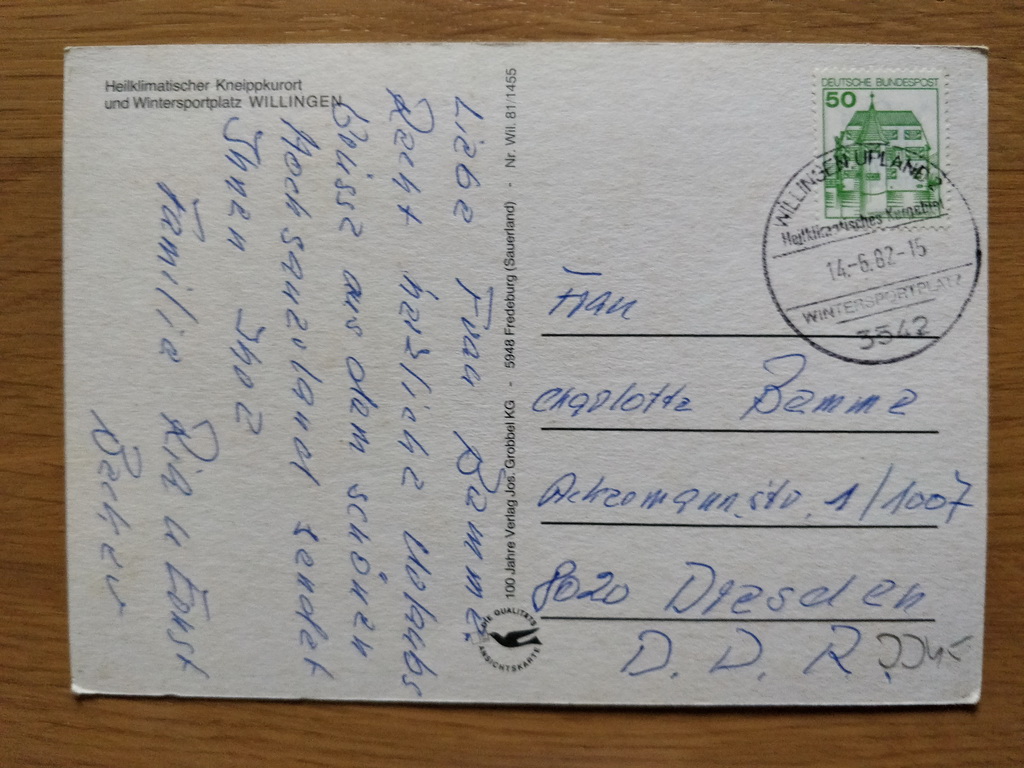 Heilklimatischer Kneippkurort
und Wintersportplatz WILLINGEN
Liebe Frau Bemme.
Recht herzliche Urlaubs
Grüsse aus dem schönen
Hochsauerland sendet
Ihnen Ihre
Familie Ria u Ernst
Becker
100 Jahre Verlag Jos. Grobbel KG - 5948 Fredeburg (Sauerland) - Nr. Wil. 81/1455
DIE QUALITÄTS
ANSICHTSKARTE
DEUTSCHE BUNDESPOST
50
WILLINGEN, UPLAND 2
Heilklimatisches Kurgebiet
14.-6.82-15
WINTERSPORTPLATZ
3542
Frau
Charlotte Bemme
Ackermannstr. 1/1007
8020 Dresden
D. D. R.